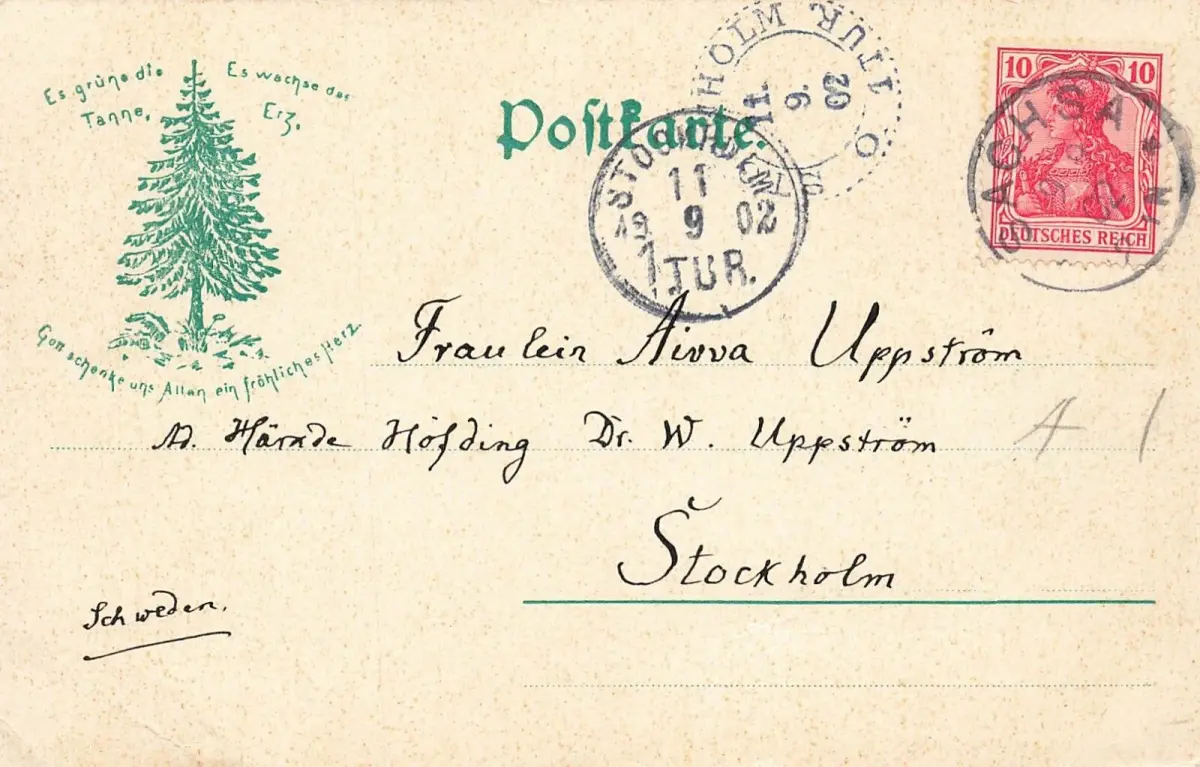 Es grüne die
Tanne,
Es wachse das
Erz,
Gott schenke uns Allen ein fröhliches Herz
Postkarte.
HOLM 1 TUR
11
9.
02
STOCKHOLM
11
9 02
1 TUR.
10 10
DEUTSCHES REICH
SACHSA
Fraulein Aivva Uppström
Ad. Härade Höfding Dr. W. Uppström
Stockholm
Schweden.